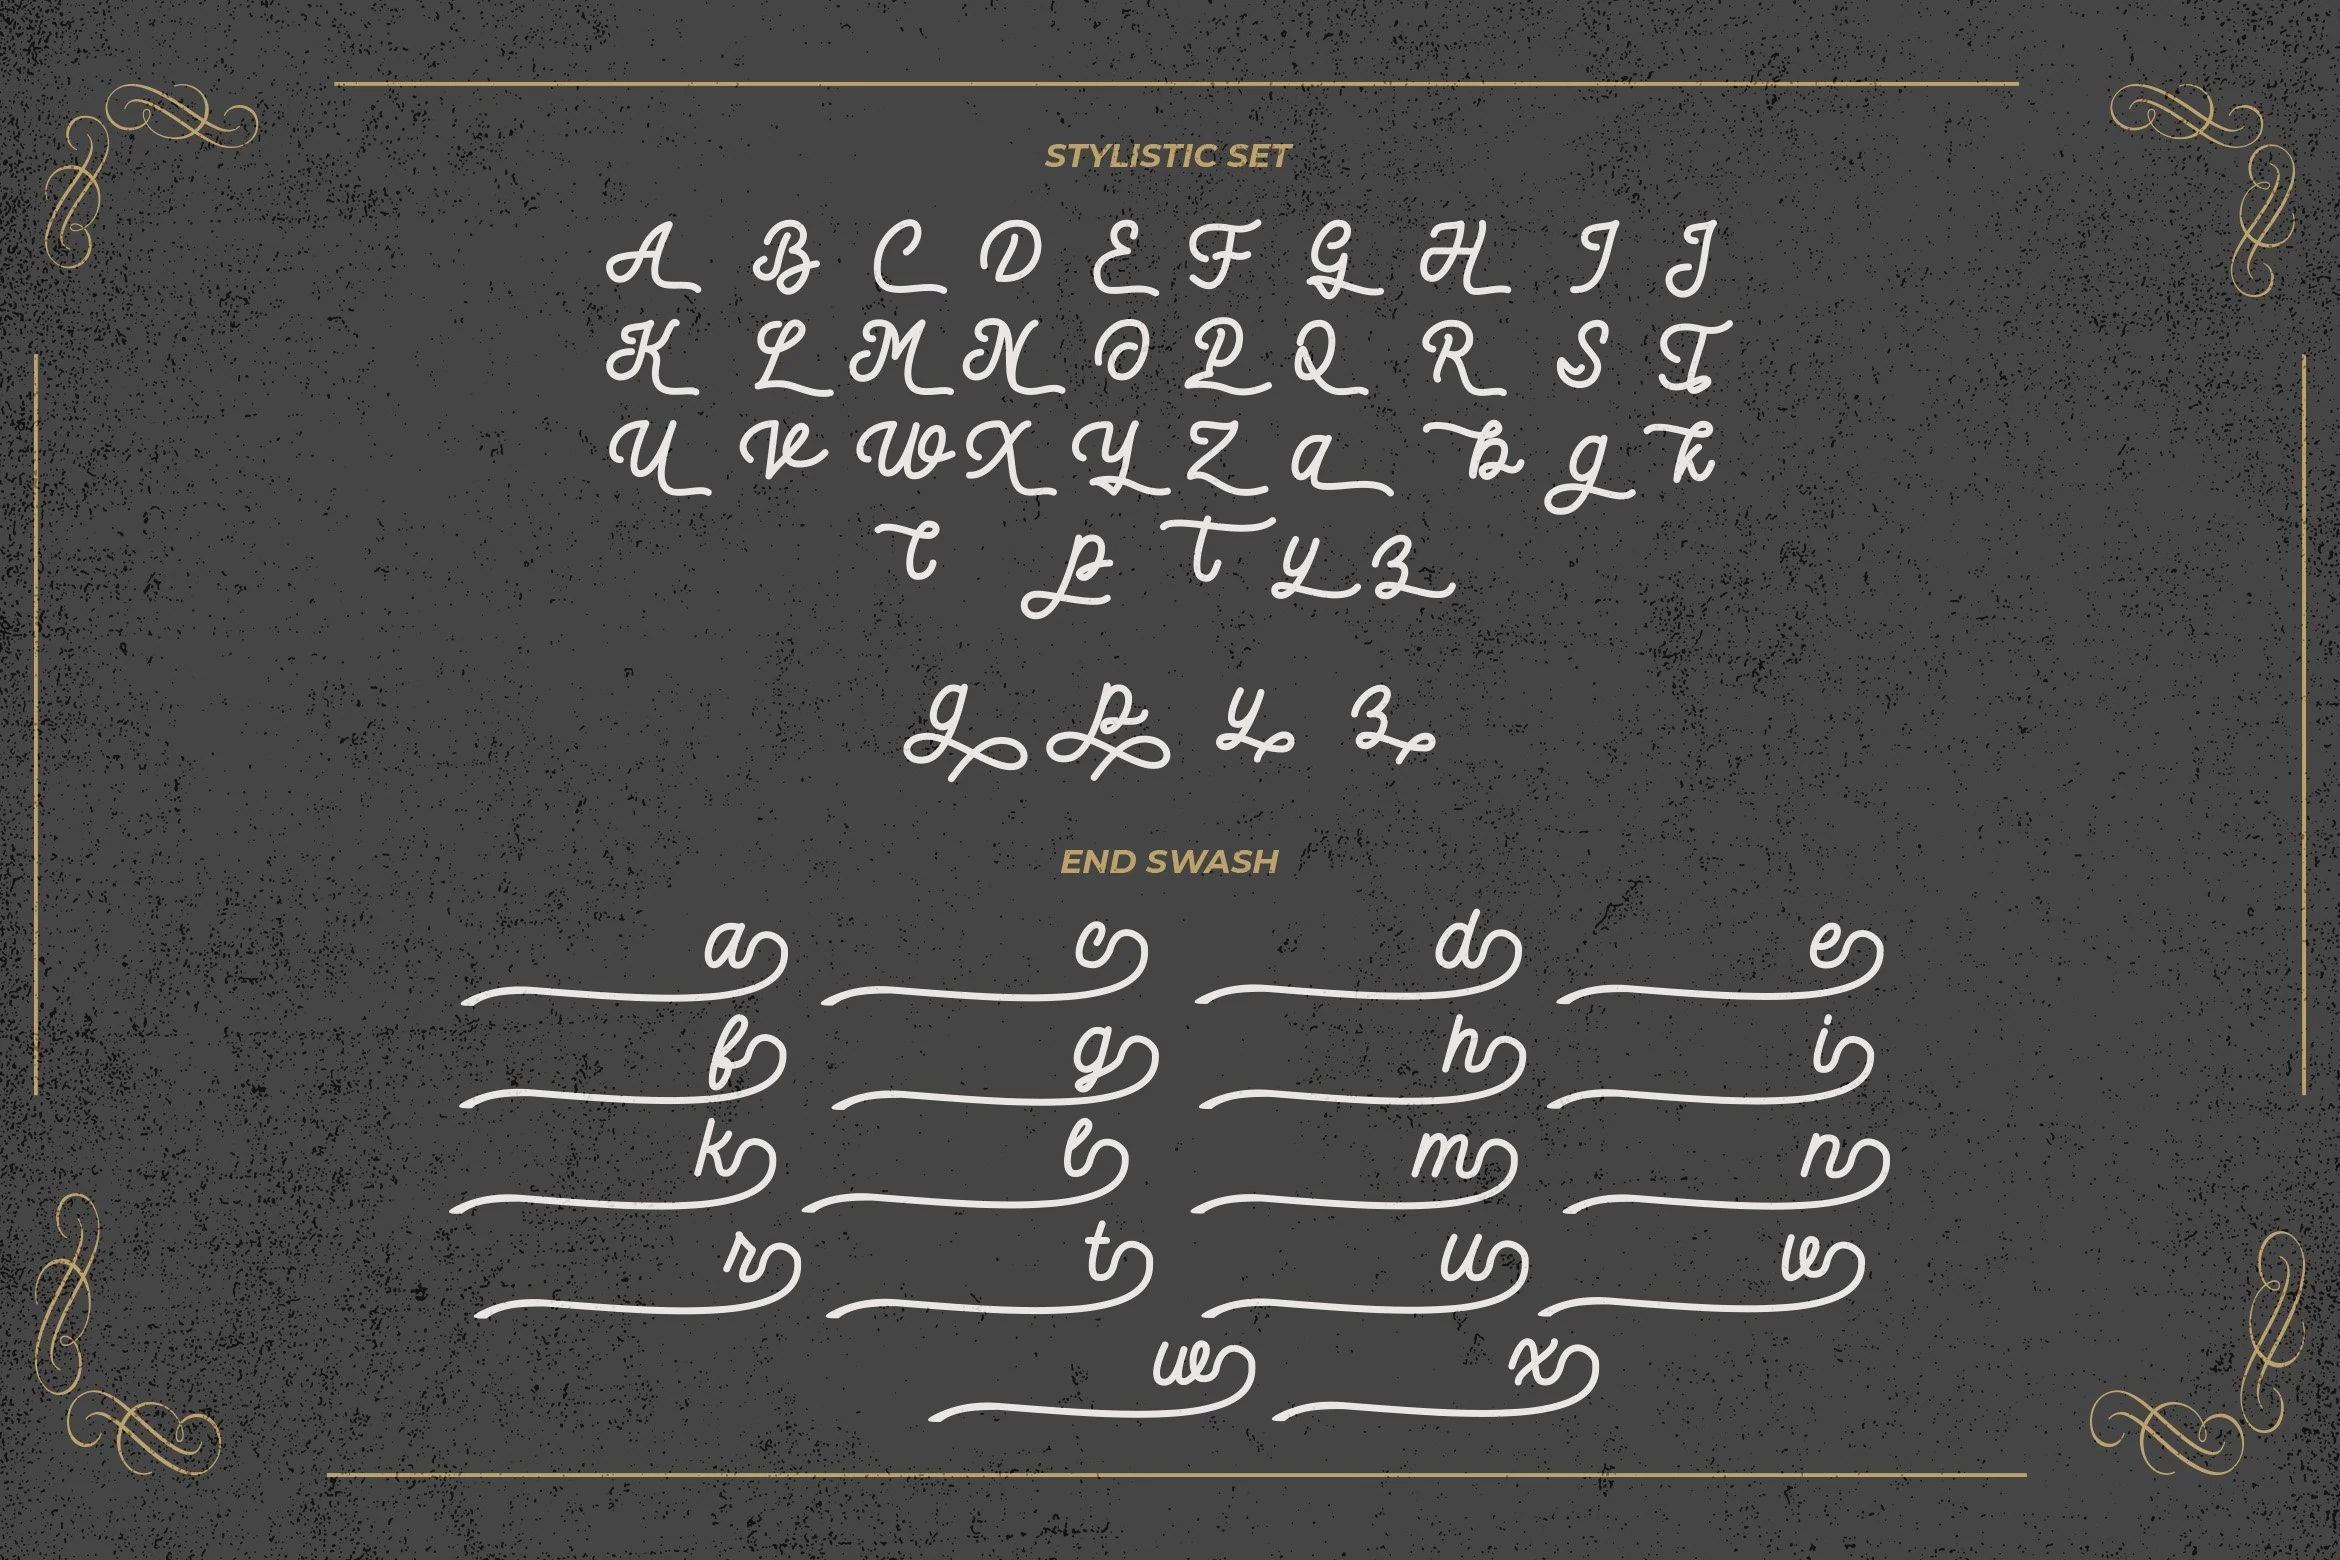 STYLISTIC SET
A B C D E F G H I J
K L M N O P Q R S T
U V W X Y Z a b g k
l p t y z
g p y z
END SWASH
a c d e
f g h i
k l m n
r t u v
w x